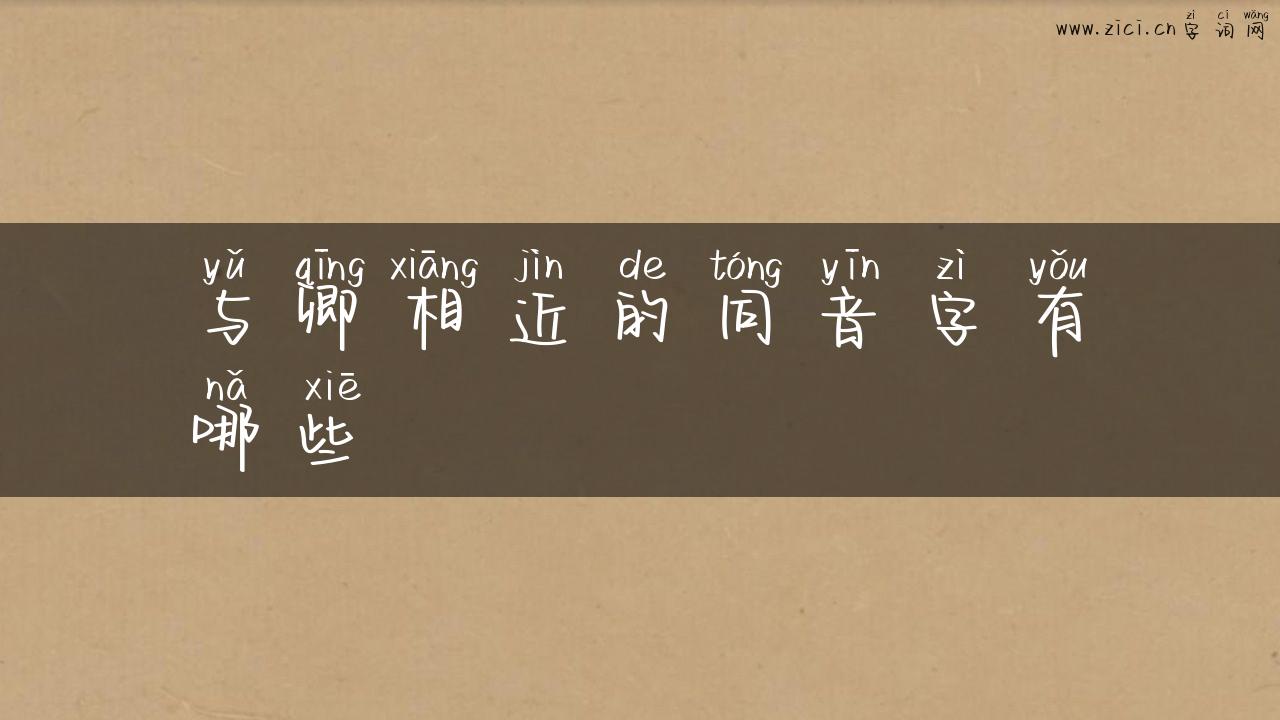 zì cí wǎng
www.zici.cn 字词网
yǔ qīng xiāng jìn de tóng yīn zì yǒu
与卿相近的同音字有
nǎ xiē
哪些